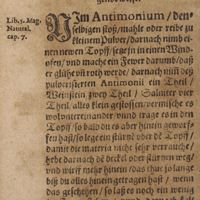 Lib. 5. Mag.
Natural.
cap. 7.
NIm Antimonium / den-
selbigen stoß / mahle oder reibe zu
kleinem Pulver / darnach nimb ei-
nen newen Topff / setze jn in einen Wind-
ofen / vnd mache ein Fewer darumb / daß
er glühe vñ roth werde / darnach nim deß
pulverisierten Antimonii ein Theil /
Weinstein zwey Theil / Salniter vier
Theil / alles klein gestossen / vermische es
wol vntereinander / vnnd trage es in den
Topff / so bald du es aber hinein gewor-
fen hast / so decke jn zu / damit dir nicht
etwan der rauch zu sehr verrauche /
hebe darnach dē deckel oder stürtzen weg /
vnd wirff mehr hinein / das thue so lang
biß du alles hinein getragen hast / wenn
das geschehen / so laß es noch ein wenig